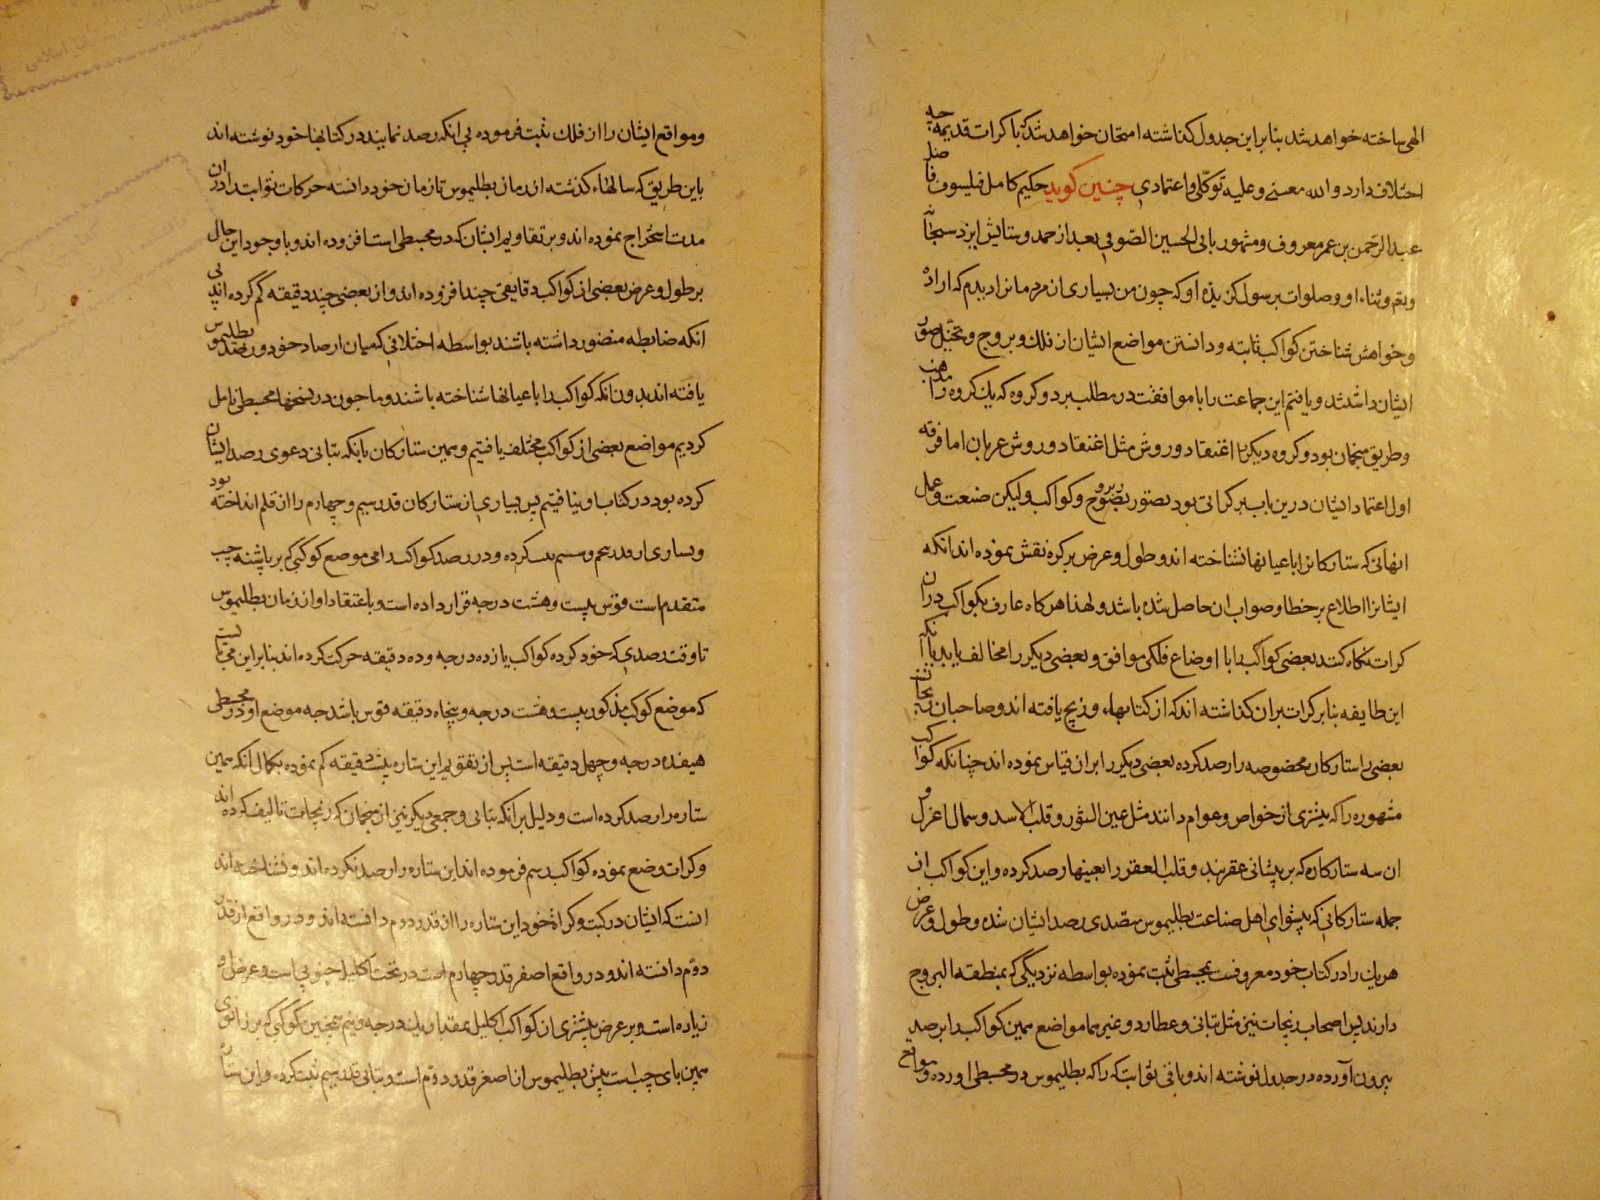 الهی ساخته خواهد شد بنابراین جدول کذاشته امتحان خواهد شد که با کرات قدیمه چه
اختلاف دارد والله معینی وعلیه توکلی واعتمادی چنین کوید حکیم کامل فیلسوف فاضل
عبدالرحمن بن عمر معروف ومشهور بابی الحسین الصوفی بعد از حمد وستایش ایزد سبحانه
وثناء او وصلوات بر رسول کزیده او که چون من بسیاری از مردمانرا دیدم که اراده
وخواهش شناختن کواکب ثابته ودانستن مواضع ایشان از فلک وبروج وتخیل صور
ایشان داشتند ویافتم این جماعت را با موافقت در مطلب بر دو کروه که یک کروه را مذهب
وطریق منجمان بود وکروه دیکر را اعتقاد وروش مثل اعتقاد وروش عربان اما فرقه
اول اعتماد ایشان درین باب بر کراتی بود بصور بروج وکواکب ولیکن صنعت وعمل
انهانی که ستارکانرا باعیانها نشناخته اند وطول وعرض بر کره نقش نموده اند انکه
ایشانرا اطلاع بر خطا وصواب ان حاصل شده باشد ولهذا هر کاه عارف بکواکب دران
کرات نکاه کند بعضی کواکب را با اوضاع فلکی موافق وبعضی دیکر را مخالف یابد با آنکه
این طایفه بنابر کرات بران کذاشته اند که از کتابهاء وزیج یافته اند وصاحبان زیجات
بعضی را ستارکان مخصوصه را رصد کرده بعضی دیکر را بران قیاس نموده اند چنانکه کواکب
مشهوره را که بیشتری از خواص وعوام دانند مثل عین الثور وقلب الاسد وسماک اعزل و
ان سه ستاره که بر پیشانی عقربند وقلب العقرب را بعینها رصد کرده واین کواکب از
جمله ستارکانی که پیشوای اهل صناعت بطلیموس متصدی رصد ایشان شده وطول وعرض
هریک را در کتاب خود معروفت بمجسطی ثبت نموده بواسطه نزدیکی که بمنطقه البروج
دارند پس اصحاب زیجات نیز مثل بتانی وعطارد وغیرهما مواضع همین کواکب را برصد
بیرون آورده در جدول نوشته اند وباقی ثوابت که را که بطلیموس در مجسطی اورده ومواقع
ومواقع ایشان را از فلک ثبت فرموده بی انکه رصد نمایند در کتابها خود نوشته اند
باین طریق که سالهاء کذشته از زمان بطلیموس تا زمان خود دانسته حرکات ثوابت را دران
مدت استخراج نموده اند وبر تقاویم ایشان که در مجسطی است افزوده اند وبا وجود این حال
بر طول وعرض بعضی از کواکب دقایقی چند افزوده اند واز بعضی چند دقیقه کم کرده اند بی
انکه ضابطه منضور داشته باشند بواسطه اختلافی که میان ارصاد خود ورصد بطلیموس
یافته اند بدون انکه کواکب را باعیانها شناخته باشند وما چون در نسخها مجسطی تامل
کردیم مواضع بعضی از کواکب مختلف یافتیم وهمین ستارکان با انکه بتانی دعوی رصد ایشان
کرده بود در کتاب او نیافتیم پس بسیاری از ستارکان قدر سیم وچهارم را از قلم انداخته بود
وبسیاری از قدر پنجم وششم ثبت کرده ودر رصد کواکب رامی موضع کوکبی که بر پاشنه چپ
متقدم است قوس بیست وهشت درجه قرار داده است وباعتقاد او از زمان بطلیموس
تا وقت رصدی که خود کرده کواکب یازده درجه وده دقیقه حرکت کرده اند بنابراین می بایست
که موضع کوکب مذکور بیست وهشت درجه وپنجاه دقیقه قوس باشد چه موضع او در مجسطی
هیفده درجه وچهل دقیقه است پس از تقویم این ستاره بیست دقیقه کم نموده بکمال انکه همین
ستاره را رصد کرده است ودلیل بر انکه بتانی وجمعی دیکر نیز از منجمان که زیجات تالیف کرده اند
وکرات وضع نموده کواکب رسم فرموده اند این ستاره را رصد نکرده اند ونشناخته اند
انست که ایشان در کتب وکراة خود این ستاره را از قدر دوم دانسته اند ودر واقع از قدر
دوم دانسته اند ودر واقع اصغر قدر چهارم است در تحت اکلیل جنوبی است وعرض او
زیاده است وبر عرض بیشتری از کواکب اکلیل بمقدار یک درجه ونیم همچنین کوکبی که بر زانوی
همین پای چپ است پیش بطلیموس از اصغر قدر دوم است وبتانی قدر سیم ثبت کرده واین ستاره